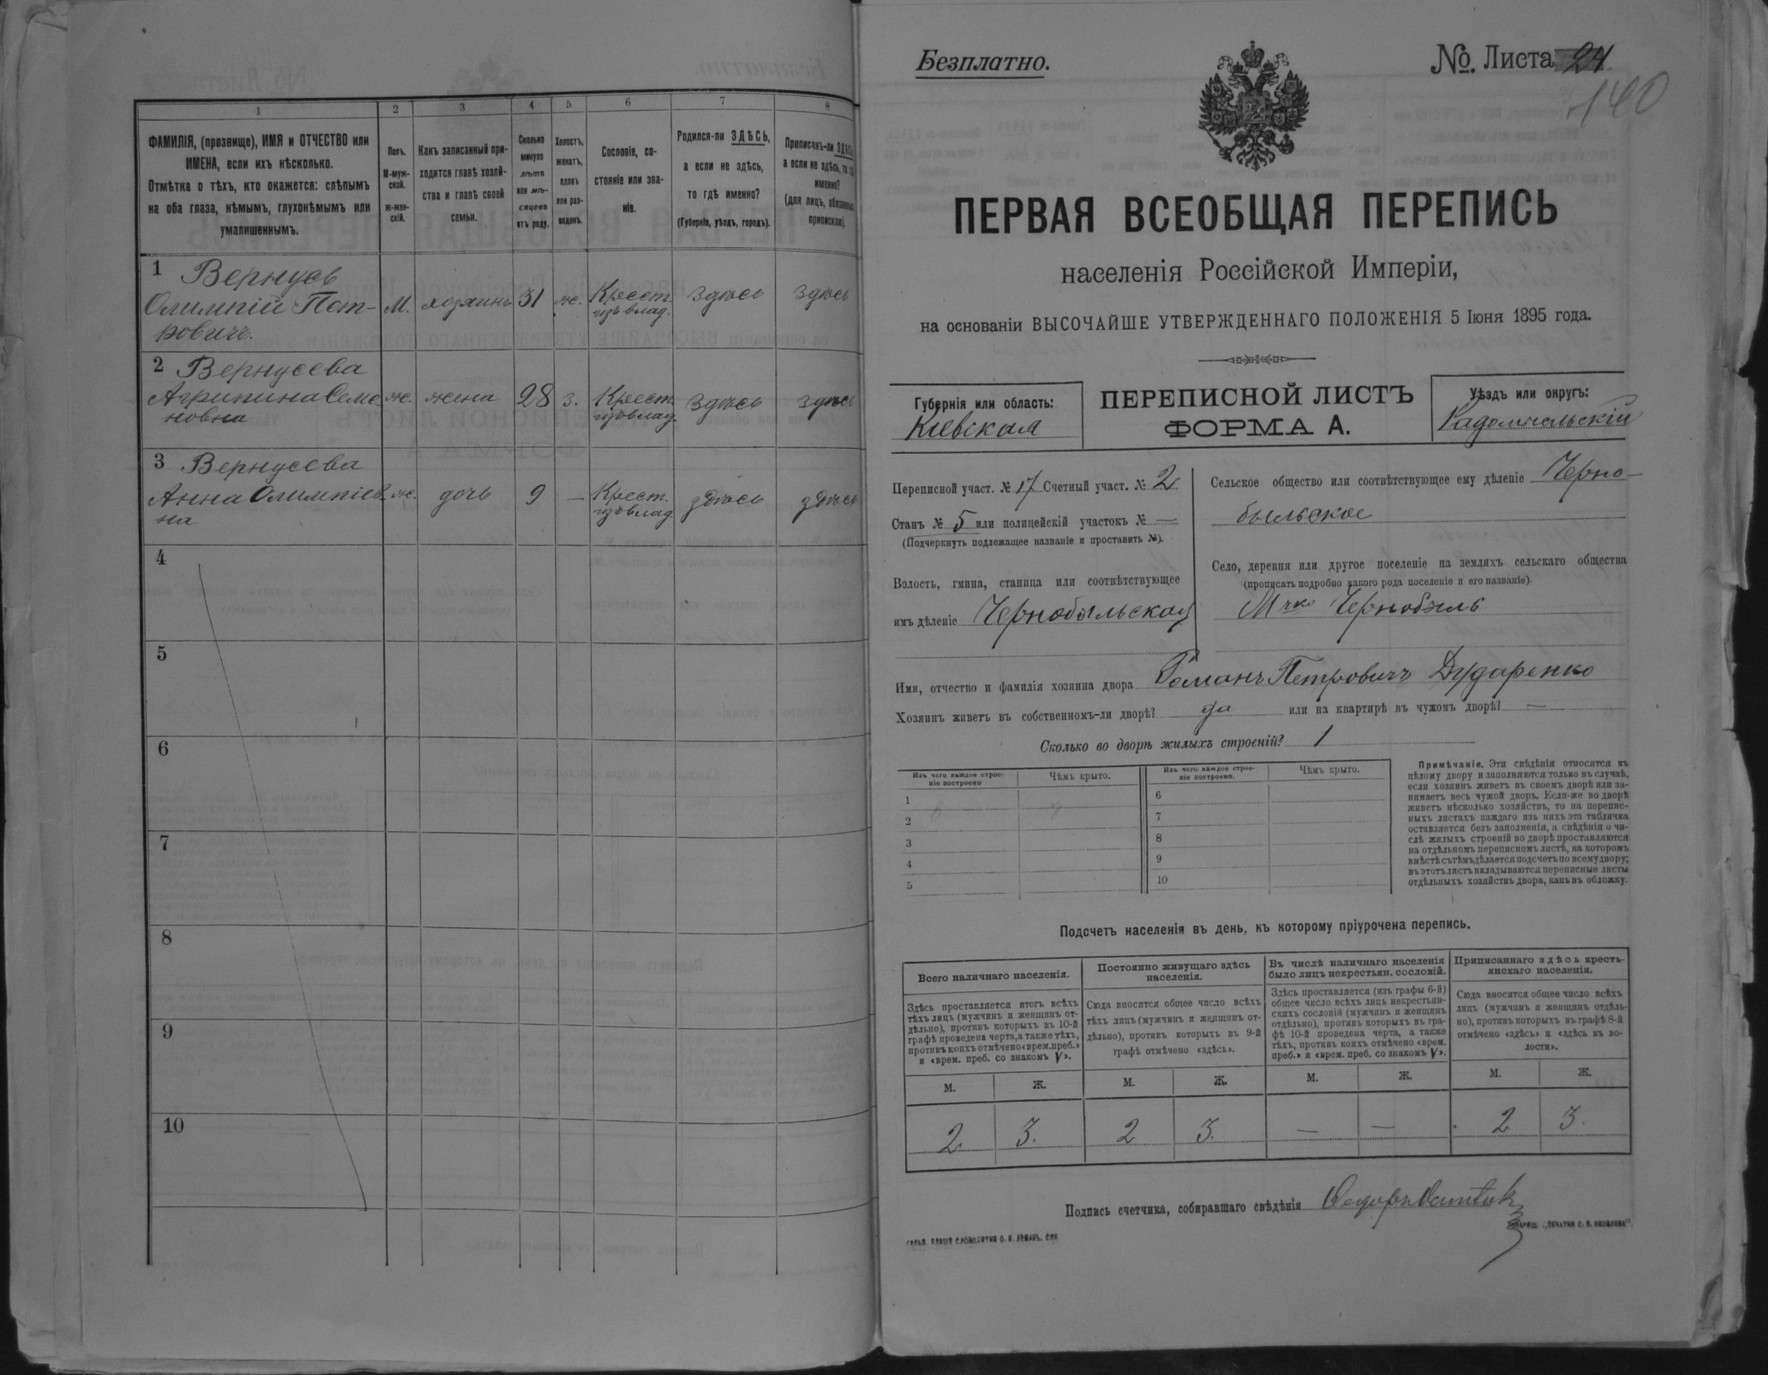 1
2
3
4
5
6
7
8
ФАМИЛІЯ, (прозвище), ИМЯ и ОТЧЕСТВО или
ИМЕНА, если ихъ нѣсколько.
Отмѣтка о тѣхъ, кто окажется: слѣпымъ
на оба глаза, нѣмымъ, глухонѣмымъ или
умалишеннымъ.
Полъ.
М-муж-
ской.
ж-жен-
скій.
Какъ записанный при-
ходится главѣ хозяй-
ства и главѣ своей
семьи.
Сколько
минуло
лѣтъ
или мѣ-
сяцевъ
отъ роду.
Холостъ,
женатъ,
вдовъ
или раз-
веденъ.
Сословіе, со-
стояніе или зва-
ніе.
Родился-ли ЗДѢСЬ,
а если не здѣсь,
то гдѣ именно?
(Губернія, уѣздъ, городъ).
Приписанъ-ли ЗДѢСЬ,
а если не здѣсь, то гдѣ
именно?
(для лицъ, обязанныхъ
припискою).
1 Вернусь
Олимпій Пет-
ровичъ.
М.
хозяинъ
31
ж.
Крест.
изъ влад.
здѣсь
здѣсь
2 Вернусева
Агрипина Семе
новна
ж.
жена
28
з.
Крест.
изъ влад.
здѣсь
здѣсь
3 Вернусева
Анна Олимпіев
на
ж.
дочь
9
—
Крест.
изъ влад
здѣсь
здѣсь
4
5
6
7
8
9
10
Безплатно.
№. Листа 24
140
ПЕРВАЯ ВСЕОБЩАЯ ПЕРЕПИСЬ
населенія Россійской Имперіи,
на основаніи ВЫСОЧАЙШЕ УТВЕРЖДЕННАГО ПОЛОЖЕНІЯ 5 Іюня 1895 года.
Губернія или область:
Кіевская
ПЕРЕПИСНОЙ ЛИСТЪ
ФОРМА А.
Уѣздъ или округъ:
Радомысльскій
Переписной участ. № 17 Счетный участ. № 2
Станъ № 5 или полицейскій участокъ № —
(Подчеркнуть подлежащее названіе и проставить №).
Волость, гмина, станица или соотвѣтствующее
имъ дѣленіе Чернобыльская
Сельское общество или соотвѣтствующее ему дѣленіе Черно-
быльское
Село, деревня или другое поселеніе на земляхъ сельскаго общества
(прописать подробно какого рода поселеніе и его названіе)
М чко Чернобыль
Имя, отчество и фамилія хозяина двора Романъ Петровичъ Дударенко
Хозяинъ живетъ въ собственномъ-ли дворѣ? да или на квартирѣ въ чужомъ дворѣ? —
Сколько во дворѣ жилыхъ строеній? 1
Изъ чего каждое строе-
ніе построено
Чѣмъ крыто.
Изъ чего каждое строе-
ніе построено.
Чѣмъ крыто.
1
2
3
4
5
6
7
8
9
10
Примѣчаніе. Эти свѣдѣнія относятся къ
цѣлому двору и заполняются только въ случаѣ,
если хозяинъ живетъ въ своемъ дворѣ или за-
нимаетъ весь чужой дворъ. Если-же во дворѣ
живетъ нѣсколько хозяйствъ, то на перепис-
ныхъ листахъ каждаго изъ нихъ эта табличка
оставляется безъ заполненія, а свѣдѣнія о чи-
слѣ жилыхъ строеній во дворѣ проставляются
на отдѣльномъ переписномъ листѣ, на которомъ
вмѣстѣ съ тѣмъ дѣлается подсчетъ по всему двору;
въ этотъ листъ вкладываются переписные листы
отдѣльныхъ хозяйствъ двора, какъ въ обложку.
Подсчетъ населенія въ день, къ которому пріурочена перепись.
Всего наличнаго населенія.
Здѣсь проставляется итогъ всѣхъ
тѣхъ лицъ (мужчинъ и женщинъ от-
дѣльно), противъ которыхъ въ 10-й
графѣ проведена черта, а также тѣхъ,
противъ коихъ отмѣчено «врем. преб.»
и «врем. преб. со знакомъ V».
Постоянно живущаго здѣсь
населенія.
Сюда вносится общее число всѣхъ
тѣхъ лицъ (мужчинъ и женщинъ от-
дѣльно), противъ которыхъ въ 9-й
графѣ отмѣчено «здѣсь».
Въ числѣ наличнаго населенія
было лицъ некрестьян. сословій.
Здѣсь проставляется (изъ графы 6-й)
общее число всѣхъ лицъ некрестьян-
скихъ сословій (мужчинъ и женщинъ
отдѣльно), противъ которыхъ въ гра-
фѣ 10-й проведена черта, а также
тѣхъ, противъ коихъ отмѣчено «врем.
преб.» и «врем. преб. со знакомъ V».
Приписаннаго здѣсь кресть-
янскаго населенія.
Сюда вносится общее число всѣхъ
лицъ (мужчинъ и женщинъ отдѣль-
но), противъ которыхъ въ графѣ 8-й
отмѣчено «здѣсь» и «здѣсь въ во-
лости».
М.
Ж.
М.
Ж.
М.
Ж.
М.
Ж.
2
3.
2
3.
—
—
2
3.
Подпись счетчика, собиравшаго свѣдѣнія